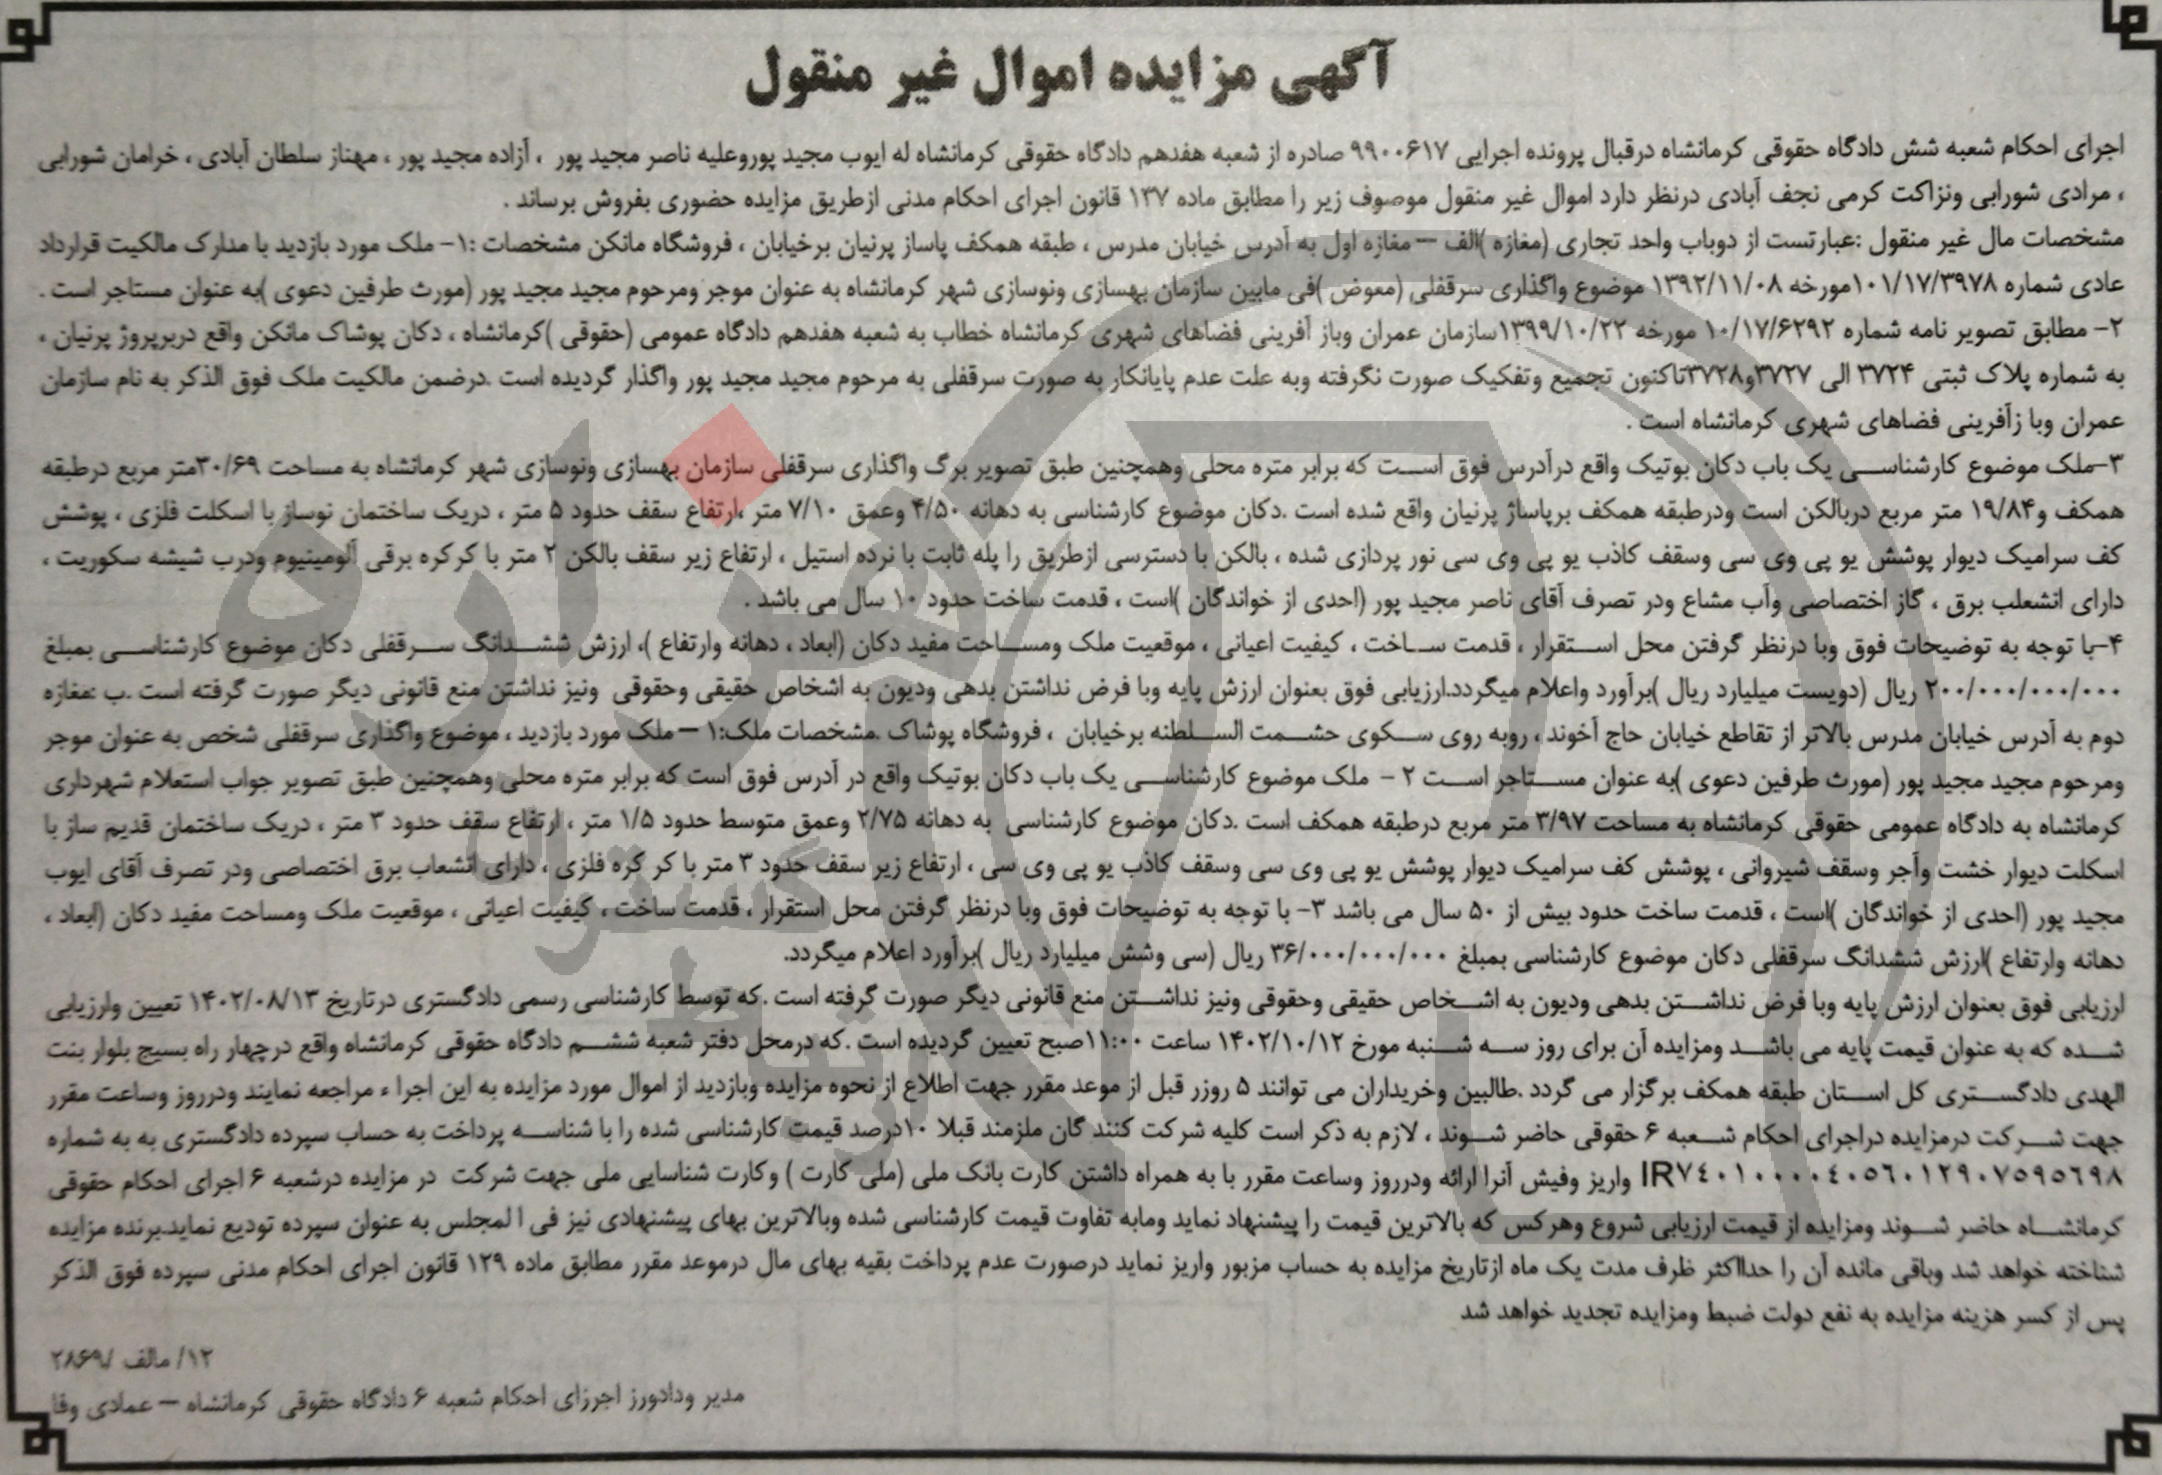 آگهی مزایده اموال غیر منقول
اجرای احکام شعبه شش دادگاه حقوقی کرمانشاه درقبال پرونده اجرایی ۹۹۰۰۶۱۷ صادره از شعبه هفدهم دادگاه حقوقی کرمانشاه له ایوب مجید پوروعلیه ناصر مجید پور ، آزاده مجید پور ، مهناز سلطان آبادی ، خرامان شورابی
، مرادی شورابی ونزاکت کرمی نجف آبادی درنظر دارد اموال غیر منقول موصوف زیر را مطابق ماده ۱۳۷ قانون اجرای احکام مدنی ازطریق مزایده حضوری بفروش برساند .
مشخصات مال غیر منقول :عبارتست از دوباب واحد تجاری (مغازه )الف – مغازه اول به آدرس خیابان مدرس ، طبقه همکف پاساز پرنیان برخیابان ، فروشگاه مانکن مشخصات :۱- ملک مورد بازدید با مدارک مالکیت قرارداد
عادی شماره ۱۰۱/۱۷/۳۹۷۸مورخه ۱۳۹۲/۱۱/۰۸ موضوع واگذاری سرقفلی (معوض )فی مابین سازمان بهسازی ونوسازی شهر کرمانشاه به عنوان موجر ومرحوم مجید مجید پور (مورث طرفین دعوی )به عنوان مستاجر است .
۲- مطابق تصویر نامه شماره ۱۰/۱۷/۶۲۹۲ مورخه ۱۳۹۹/۱۰/۲۲سازمان عمران وباز آفرینی فضاهای شهری کرمانشاه خطاب به شعبه هفدهم دادگاه عمومی (حقوقی )کرمانشاه ، دکان پوشاک مانکن واقع دربرپروژ پرنیان ،
به شماره پلاک ثبتی ۳۷۲۴ الی ۳۷۲۷و۳۷۲۸تاکنون تجمیع وتفکیک صورت نگرفته وبه علت عدم پایانکار به صورت سرقفلی به مرحوم مجید مجید پور واگذار گردیده است .درضمن مالکیت ملک فوق الذکر به نام سازمان
عمران وبا زآفرینی فضاهای شهری کرمانشاه است .
۳-ملک موضوع کارشناسی یک باب دکان بوتیک واقع درآدرس فوق است که برابر متره محلی وهمچنین طبق تصویر برگ واگذاری سرقفلی سازمان بهسازی ونوسازی شهر کرمانشاه به مساحت ۳۰/۶۹متر مربع درطبقه
همکف و۱۹/۸۴ متر مربع دربالکن است ودرطبقه همکف برپاساژ پرنیان واقع شده است .دکان موضوع کارشناسی به دهانه ۴/۵۰ وعمق ۷/۱۰ متر ،ارتفاع سقف حدود ۵ متر ، دریک ساختمان نوساز با اسکلت فلزی ، پوشش
کف سرامیک دیوار پوشش یو پی وی سی وسقف کاذب یو پی وی سی نور پردازی شده ، بالکن با دسترسی ازطریق را پله ثابت با نرده استیل ، ارتفاع زیر سقف بالکن ۲ متر با کرکره برقی آلومینیوم ودرب شیشه سکوریت ،
دارای انشعلب برق ، گاز اختصاصی وآب مشاع ودر تصرف آقای ناصر مجید پور (احدی از خواندگان )است ، قدمت ساخت حدود ۱۰ سال می باشد .
۴-با توجه به توضیحات فوق وبا درنظر گرفتن محل استقرار ، قدمت ساخت ، کیفیت اعیانی ، موقعیت ملک ومساحت مفید دکان (ابعاد ، دهانه وارتفاع )، ارزش ششدانگ سرقفلی دکان موضوع کارشناسی بمبلغ
۲۰۰/۰۰۰/۰۰۰/۰۰۰ ریال (دویست میلیارد ریال )برآورد واعلام میگردد.ارزیابی فوق بعنوان ارزش پایه وبا فرض نداشتن بدهی ودیون به اشخاص حقیقی وحقوقی ونیز نداشتن منع قانونی دیگر صورت گرفته است .ب :مغازه
دوم به آدرس خیابان مدرس بالاتر از تقاطع خیابان حاج آخوند ، روبه روی سکوی حشمت السلطنه برخیابان ، فروشگاه پوشاک .مشخصات ملک:۱ – ملک مورد بازدید ، موضوع واگذاری سرقفلی شخص به عنوان موجر
ومرحوم مجید مجید پور (مورث طرفین دعوی )به عنوان مستاجر است ۲ - ملک موضوع کارشناسی یک باب دکان بوتیک واقع در آدرس فوق است که برابر متره محلی وهمچنین طبق تصویر جواب استعلام شهرداری
کرمانشاه به دادگاه عمومی حقوقی کرمانشاه به مساحت ۳/۹۷ متر مربع درطبقه همکف است .دکان موضوع کارشناسی به دهانه ۲/۷۵ وعمق متوسط حدود ۱/۵ متر ، ارتفاع سقف حدود ۳ متر ، دریک ساختمان قدیم ساز با
اسکلت دیوار خشت وآجر وسقف شیروانی ، پوشش کف سرامیک دیوار پوشش یو پی وی سی وسقف کاذب یو پی وی سی ، ارتفاع زیر سقف حدود ۳ متر با کر کره فلزی ، دارای انشعاب برق اختصاصی ودر تصرف آقای ایوب
مجید پور (احدی از خواندگان )است ، قدمت ساخت حدود بیش از ۵۰ سال می باشد ۳- با توجه به توضیحات فوق وبا درنظر گرفتن محل استقرار ، قدمت ساخت ، کیفیت اعیانی ، موقعیت ملک ومساحت مفید دکان (ابعاد ،
دهانه وارتفاع )ارزش ششدانگ سرقفلی دکان موضوع کارشناسی بمبلغ ۳۶/۰۰۰/۰۰۰/۰۰۰ ریال (سی وشش میلیارد ریال )برآورد اعلام میگردد.
ارزیابی فوق بعنوان ارزش پایه وبا فرض نداشتن بدهی ودیون به اشخاص حقیقی وحقوقی ونیز نداشتن منع قانونی دیگر صورت گرفته است .که توسط کارشناسی رسمی دادگستری درتاریخ ۱۴۰۲/۰۸/۱۳ تعیین وارزیابی
شده که به عنوان قیمت پایه می باشد ومزایده آن برای روز سه شنبه مورخ ۱۴۰۲/۱۰/۱۲ ساعت ۱۱:۰۰صبح تعیین گردیده است .که درمحل دفتر شعبه ششم دادگاه حقوقی کرمانشاه واقع درچهار راه بسیج بلوار بنت
الهدی دادگستری کل استان طبقه همکف برگزار می گردد .طالبین وخریداران می توانند ۵ روزر قبل از موعد مقرر جهت اطلاع از نحوه مزایده وبازدید از اموال مورد مزایده به این اجرا ء مراجعه نمایند ودرروز وساعت مقرر
جهت شرکت درمزایده دراجرای احکام شعبه ۶ حقوقی حاضر شوند ، لازم به ذکر است کلیه شرکت کنند گان ملزمند قبلا ۱۰درصد قیمت کارشناسی شده را با شناسه پرداخت به حساب سپرده دادگستری به به شماره
IR٧٤٠١٠٠٠٠٤٠٥٦٠١٢٩٠٧٥٩٥٦٩٨ واریز وفیش آنرا ارائه ودرروز وساعت مقرر با به همراه داشتن کارت بانک ملی (ملی کارت ) وکارت شناسایی ملی جهت شرکت در مزایده درشعبه ۶ اجرای احکام حقوقی
کرمانشاه حاضر شوند ومزایده از قیمت ارزیابی شروع وهرکس که بالاترین قیمت را پیشنهاد نماید ومابه تفاوت قیمت کارشناسی شده وبالاترین بهای پیشنهادی نیز فی ا لمجلس به عنوان سپرده تودیع نماید.برنده مزایده
شناخته خواهد شد وباقی مانده آن را حدااکثر ظرف مدت یک ماه ازتاریخ مزایده به حساب مزبور واریز نماید درصورت عدم پرداخت بقیه بهای مال درموعد مقرر مطابق ماده ۱۲۹ قانون اجرای احکام مدنی سپرده فوق الذکر
پس از کسر هزینه مزایده به نفع دولت ضبط ومزایده تجدید خواهد شد
۱۲/ مالف /۲۸۶۹
مدیر ودادورز اجرزای احکام شعبه ۶ دادگاه حقوقی کرمانشاه – عمادی وفا